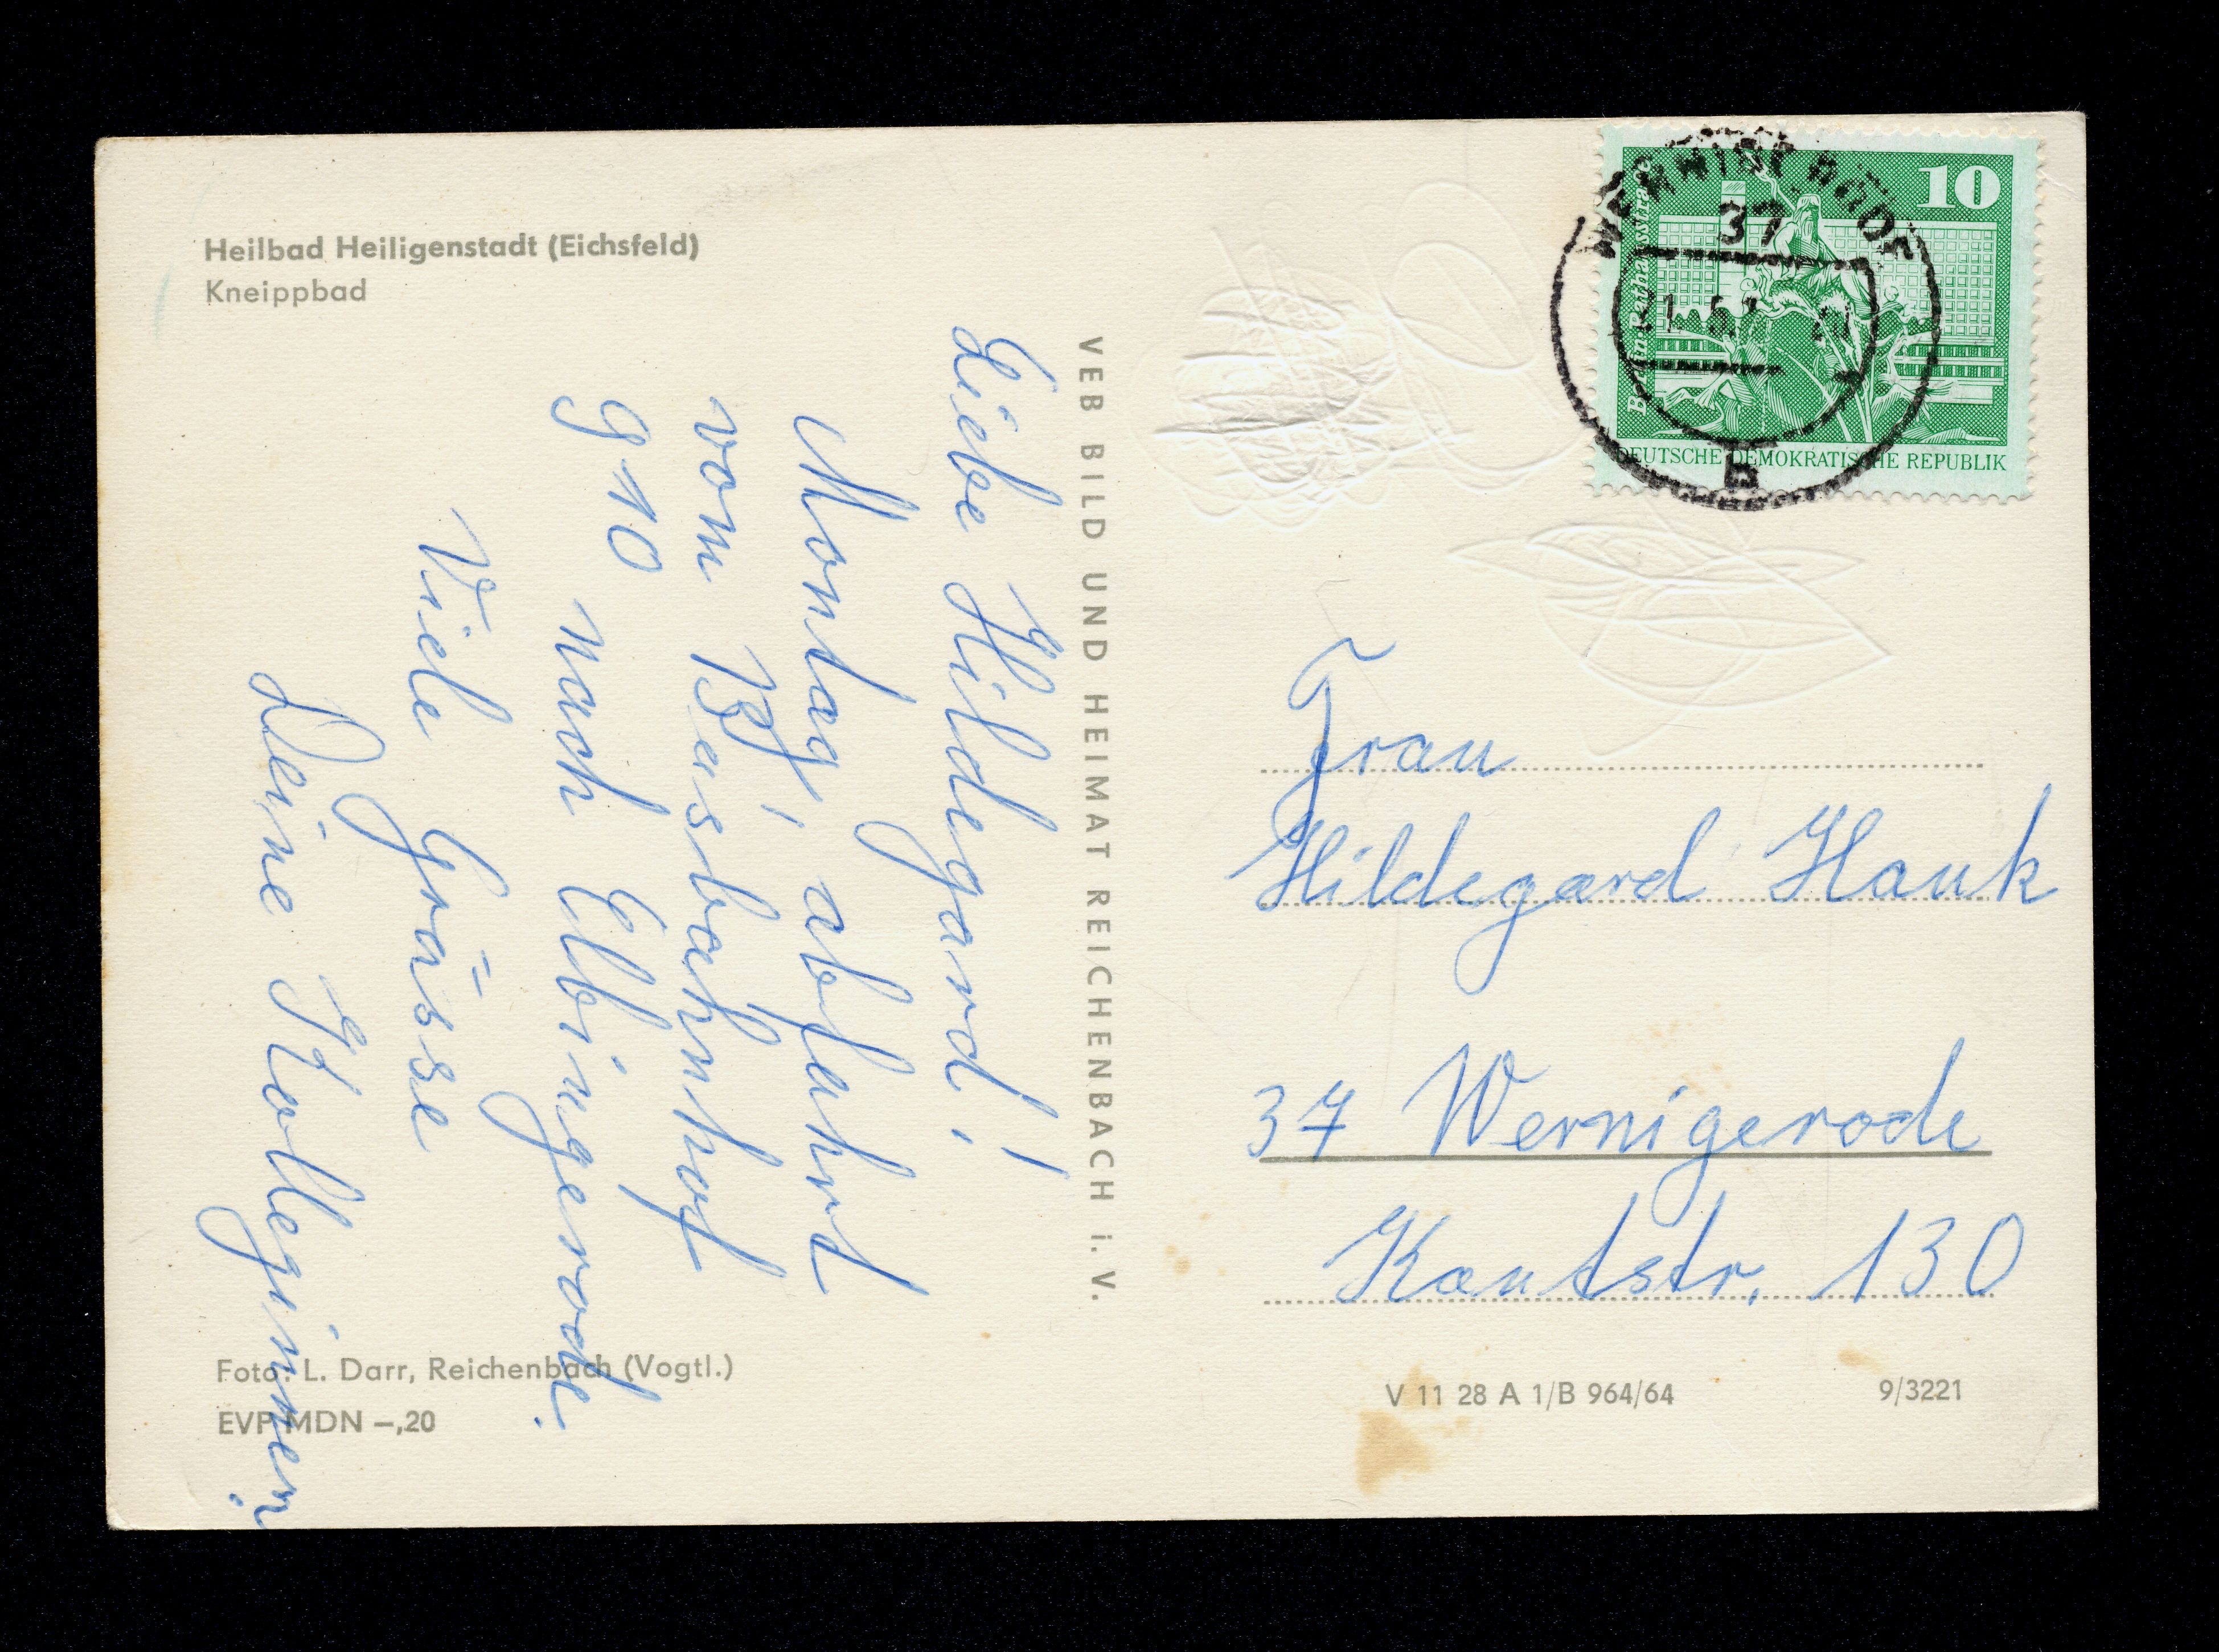 Heilbad Heiligenstadt (Eichsfeld)
Kneippbad
Liebe Hildegard!
Montag, abfahrt
vom Busbahnhof
9 10 nach Elbingerode.
Viele Grüsse
Deine Kolleginnen.
Foto: L. Darr, Reichenbach (Vogtl.)
EVP MDN –,20
VEB BILD UND HEIMAT REICHENBACH i. V.
10
Berlin, Rathausstrasse
DEUTSCHE DEMOKRATISCHE REPUBLIK
WERNIGERODE
37
Frau
Hildegard Hauk
37 Wernigerode
Kantstr. 130
V 11 28 A 1/B 964/64
9/3221